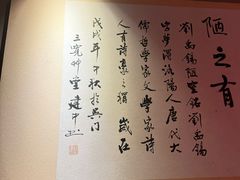 陋之有
劉禹錫陋室銘劉禹錫
字夢得洛陽人唐代大
儒哲學家文學家詩
人有詩豪之稱 歲在
戊戌年秋於吳門
三艸堂建中